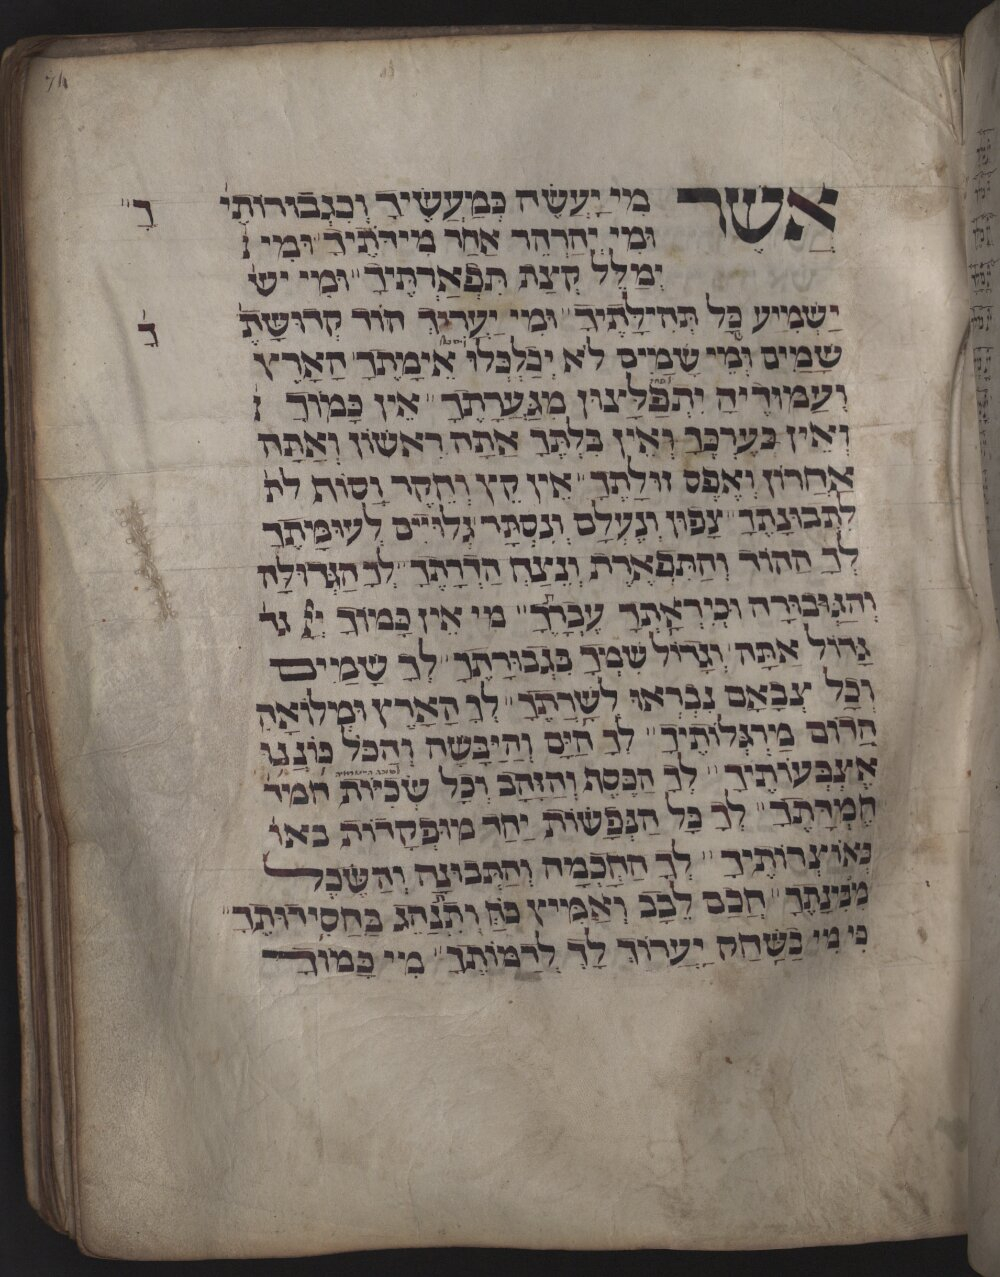 74
אֲשֶׁר מִי יַעֲשֶׂה כְּמַעֲשֶׂיךָ וְכִגְבוּרוֹתֶי ךָ
וּמִי יְהַרְהֵר אַחַר מִידּתֶיךָ וּמִי
יְמַלֵּל קְצָת תִּפְאַרְתֶּיךָ וּמִי יש
יַשְׁמִיעַ כָּל תְּהִילָּתֶיךָ וּמִי יַעֲרִיךְ הוֹד קְדוּשָּׁתֶ ךָ
שָׁמַיִם וּשְׁמֵי שָׁמַיִם לֹא יְכַלְכְּלוּ אֵימָתֶךָ הָאָרֶץ
וְעַמּוּדֶיהָ יִתְפַּלְּצוּן מִגַּעֲרָתֶךָ אֵין כָּמוֹךָ
וְאֵין כְּעֶרְכֶּךָ וְאֵין בִּלְתֶּךָ אַתָּה רִאשׁוֹן וְאַתָּה
אַחֲרוֹן וְאֶפֶס זוּלָתֶךָ אֵין קֵץ וְחֵקֶר וְסוֹת לת
לִתְבוּנָתֶךָ צָפוּן וְנֶעְלָם וְנִסְתָּר גְּלוּיִים לְעוּמָּתֶךָ
לְךָ הַהוֹד וְהַתִּפְאֶרֶת וְנֵיצַח הַדְרָתֶךָ לְךָ הַגְּדוּלָּה
וְהַגְּבוּרָה וּכְיִרְאָתְךָ עֶבְרָתֶךָ מִי אֵין כָּמוֹךָ יְיָ גד
גָּדוֹל אַתָּה וְגָדוֹל שִׁמְךָ בִּגְבוּרָתֶךָ לְךָ שָׁמַיִם
וְכָל צְבָאָם נִבְרְאוּ לְשָׁרְתֶךָ לְךָ הָאָרֶץ וּמְלוֹאָהּ
הֲדוֹם מַרְגְּלוֹתֶיךָ לְךָ הַיָּם וְהַיַּבָּשָׁה וְהַכֹּל כּוֹנְנוּ
אֶצְבְּעוֹתֶיךָ לְךָ הַכֶּסֶף וְהַזָּהָב וְכָל שְׂכִיּוֹת חמיד
חֶמְדָּתֶךָ לְךָ כָּל הַנְּפָשׁוֹת יַחַד מוּפְקָדוֹת באו
בְּאוֹצְרוֹתֶיךָ לְךָ הַחָכְמָה וְהַתְּבוּנָה וְהַשֶּׂכֶל
מִבִּינָתֶךָ חֲכַם לֵבָב וְאַמִּיץ כֹּחַ וְתִנְהַג בַּחֲסִידוּתֶךָ
כִּי מִי בַשַּׁחַק יַעֲרוֹךְ לָךְ לְדַמּוֹתֶךָ מִי כָּמוֹךָ